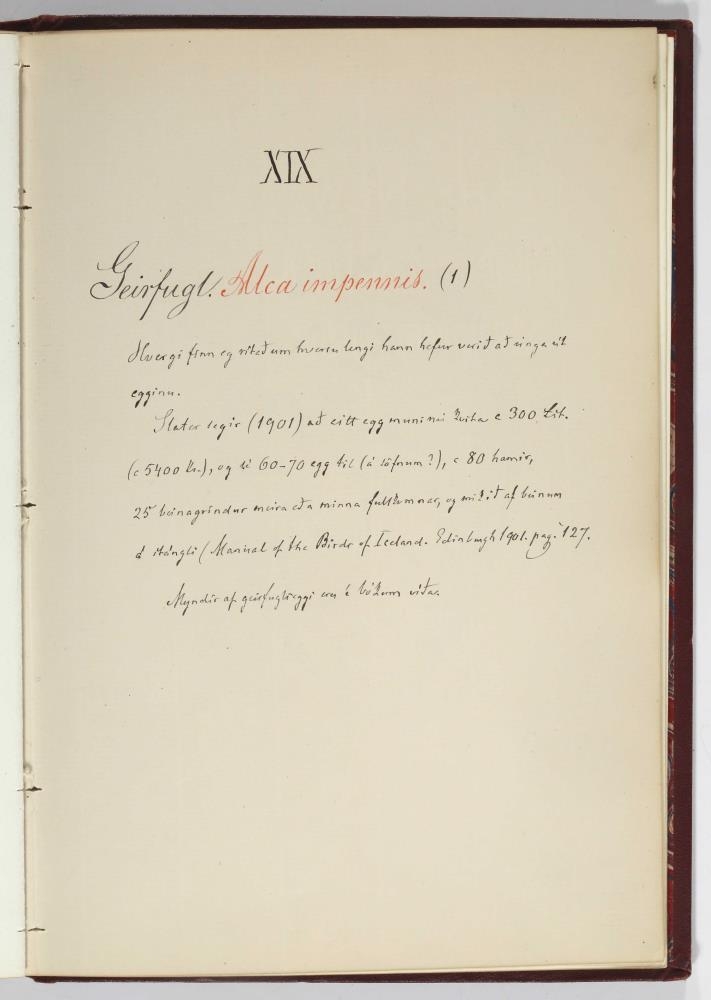 XIX
Geirfugl. Alca impennis. (1)
Hvergi finn eg ritað um hversu lengi hann hefur verið að unga út
egginu.
Slater segir (1901) að eitt egg muni nú kosta c 300 £st.
(c 5400 kr.), og sé 60-70 egg til (á söfnum?), c 80 hamir,
25 beinagrindur meira eða minna fullkomnar, og mikið af beinum
á stángli (Manual of the Birds of Iceland. Edinburgh 1901. pag. 127.
Myndir af geirfuglseggi eru í bókum víða.